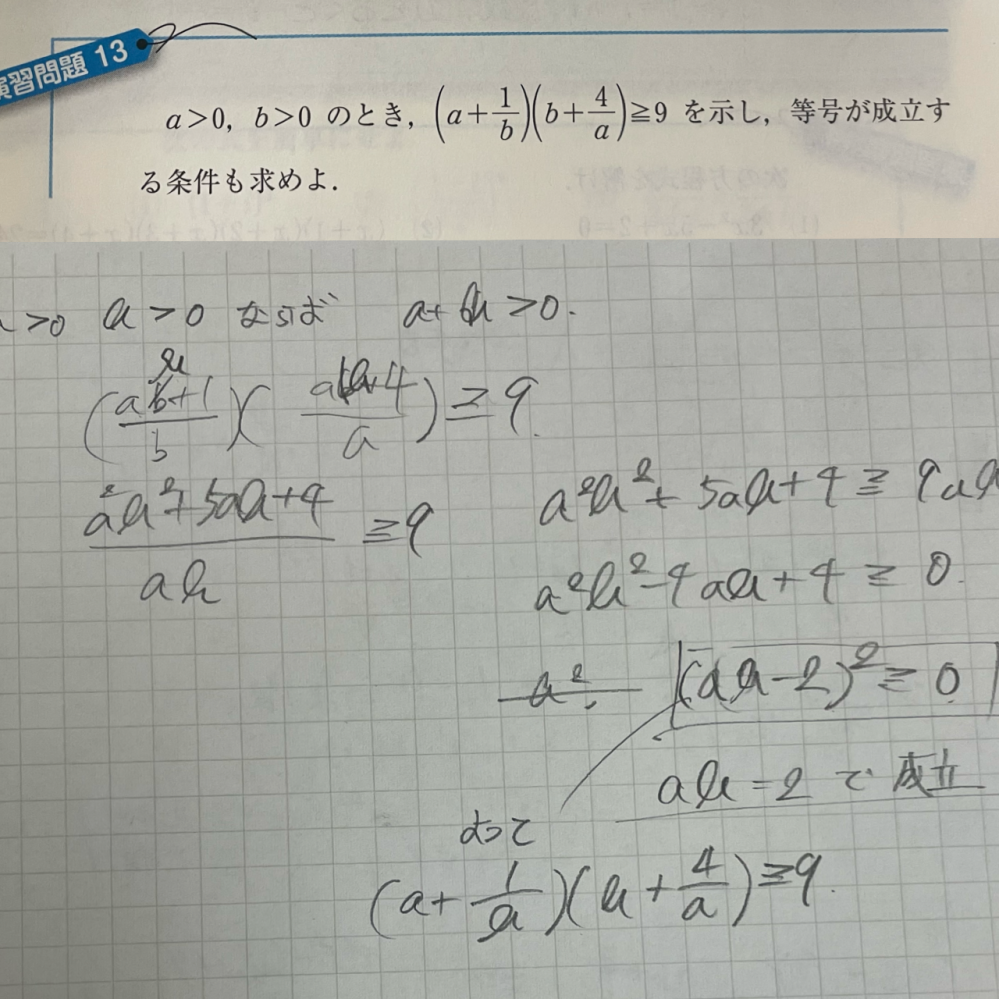 演習問題 13
a>0, b>0 のとき, (a+1/b)(b+4/a)≧9 を示し, 等号が成立す
る条件も求めよ.
>0 b>0 ならば a+b>0.
(ab+1/b)(ab+4/a)≧9.
a²b²+5ab+4/ab ≧9
a²b²+5ab+4≧9ab
a²b²-4ab+4≧0.
(ab-2)²≧0
ab=2で成立
よって
(a+1/b)(b+4/a)≧9.